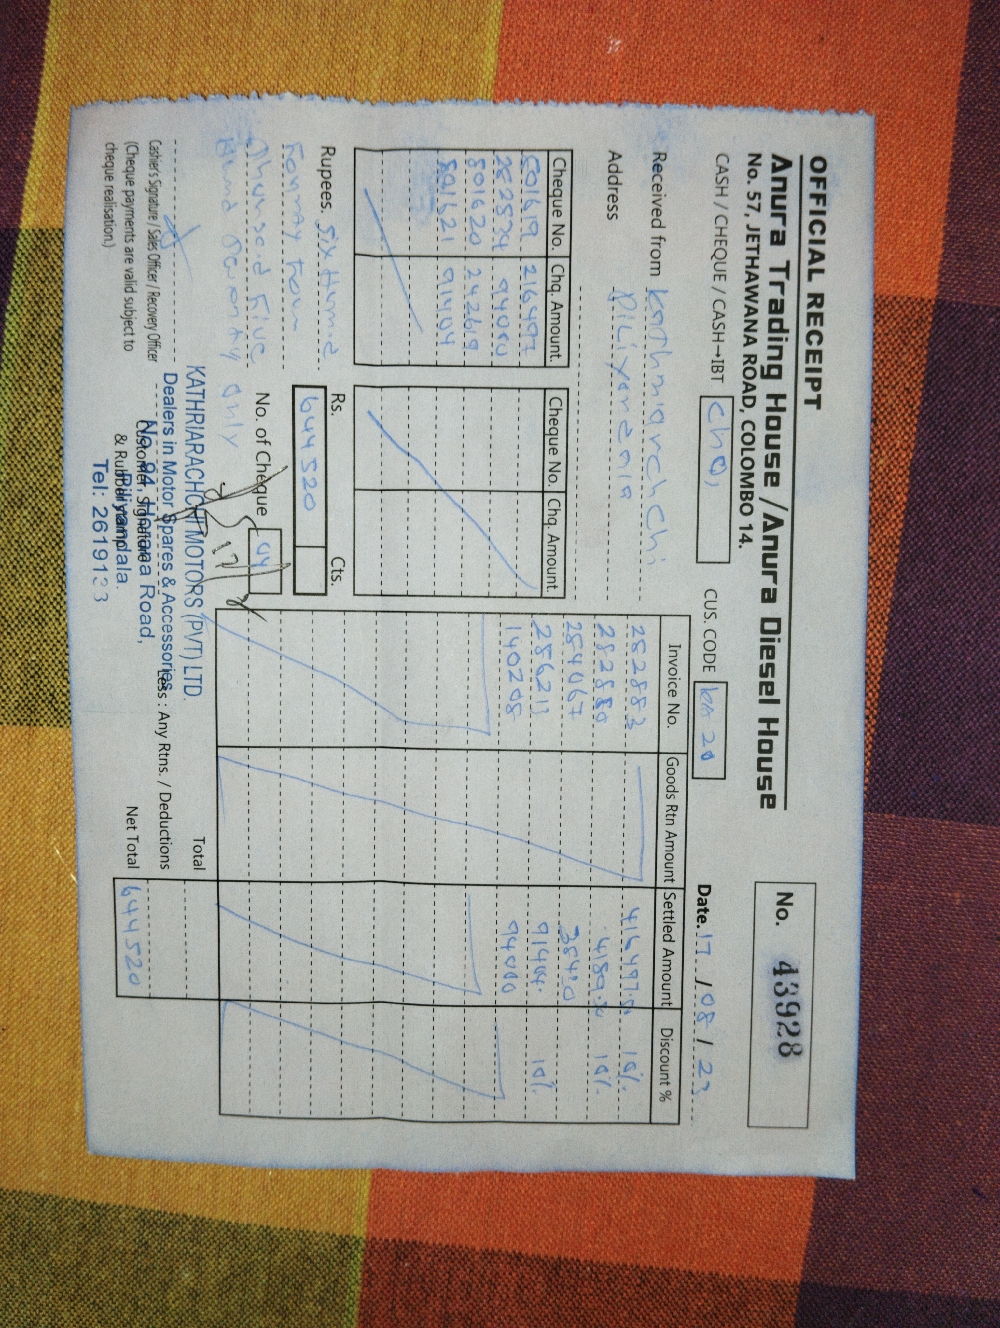 OFFICIAL RECEIPT
Anura Trading House / Anura Diesel House
No. 57, JETHAWANA ROAD, COLOMBO 14.
No. 43928
CASH / CHEQUE / CASH→IBT
CUS. CODE
Date. 17 / 08 / 23
Received from
Address Piliyandala
Cheque No. Chq. Amount. Cheque No. Chq. Amount.
801619 216497
282874 94000
801620 242619
801621 91404
Invoice No. Goods Rtn Amount Settled Amount Discount %
282883 10%
282880 10%
284067 38420
286211 91404. 10%
140208 94000
Rupees. Six Hund
Fourty four
Thousand Five
Hund Twenty only
Rs. Cts.
644520
No. of Cheque 04
KATHRIARACHCHI MOTORS (PVT) LTD.
Dealers in Motor Spares & Accessories
No. 94, Horana Road,
Piliyandala.
Tel: 2619133
Cashier's Signature / Sales Officer / Recovery Officer
(Cheque payments are valid subject to
cheque realisation.)
Customer, Signature
& Rubber stamp
Total
Less : Any Rtns. / Deductions
Net Total 644520